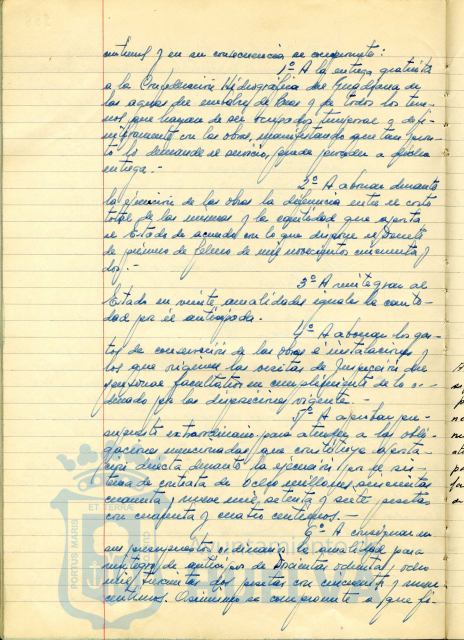 y en su consecuencia se compromete:
1º A la entrega gratuita
a la Confederación Hidrográfica del Guadiana de
las aguas del embalse de y de todos los terre-
nos que hayan de ser ocupados temporal y defi-
nitivamente con las obras, manifestando que tan pron-
to lo demande el servicio, puede proceder a dicha
entrega.-
2º A abonar durante
la ejecución de las obras la diferencia entre el costo
total de las mismas y la cantidad que aporta
el Estado de acuerdo con lo que dispone el Decreto
de primero de febrero de mil novecientos cincuenta y
dos.-
3º A reintegrar al
Estado en veinte anualidades iguales la canti-
dad por él anticipada.
4º A abonar los gas-
tos de conservación de las obras e instalaciones y
los que originen las visitas de Inspección del
personal facultativo en cumplimiento de lo or-
denado por las disposiciones vigentes.-
5º A aprobar pre-
supuesto extraordinario para atender a las obli-
gaciones mencionadas, que constituye aporta-
ción directa durante la ejecución por el sis-
tema de contrata de ocho millones, seiscientas
cincuenta y nueve mil setenta y siete pesetas
con cincuenta y cuatro céntimos.-
6º A consignar en
sus presupuestos ordinarios la anualidad para
reintegro de anticipo de Doscientas ochenta y ocho
mil trescientas dos pesetas con cincuenta y nueve
céntimos. Asimismo se compromete a que fi-
PORTUS MARIS
ET TERRAE
Ayuntamiento de